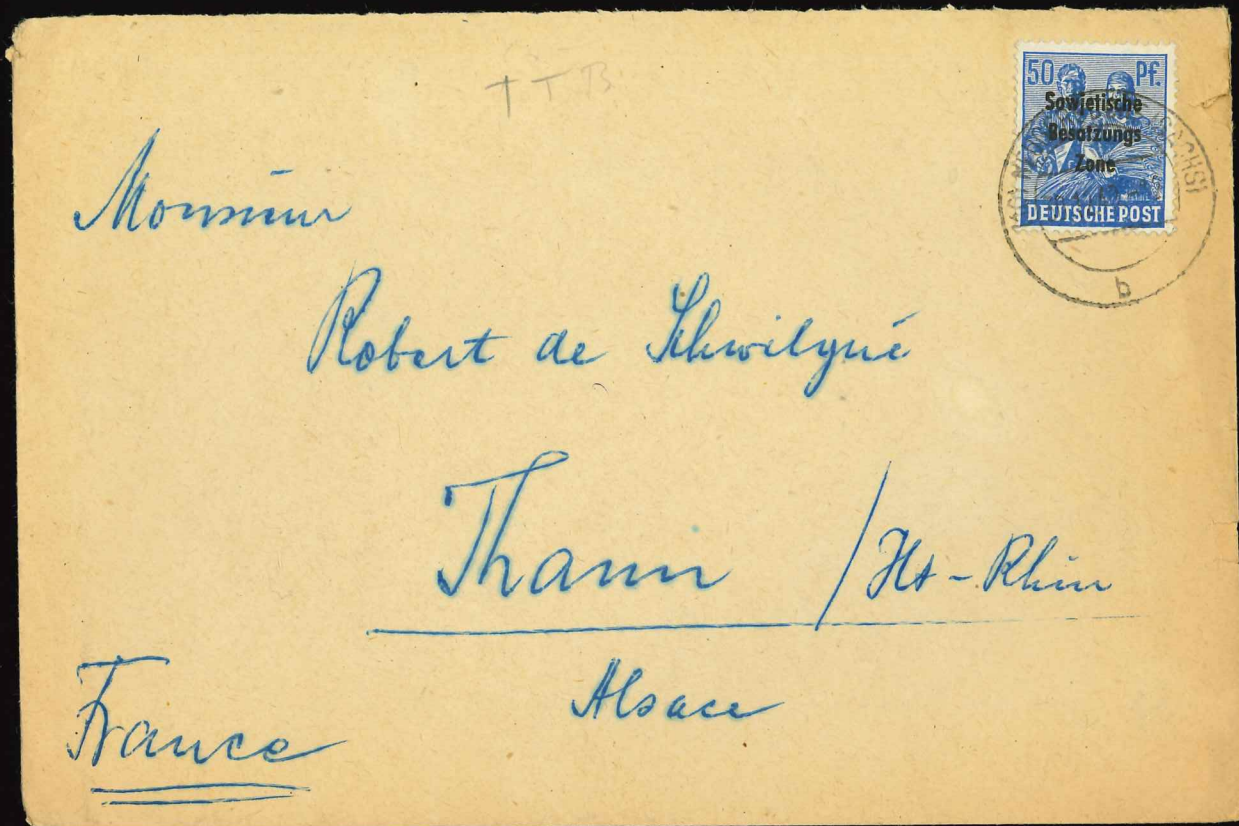 T T B
50 Pf.
Sowjetische
Besatzungs
Zone
DEUTSCHE POST
b
Monsieur
Robert de Schwilgué
Thann / Ht-Rhin
Alsace
France